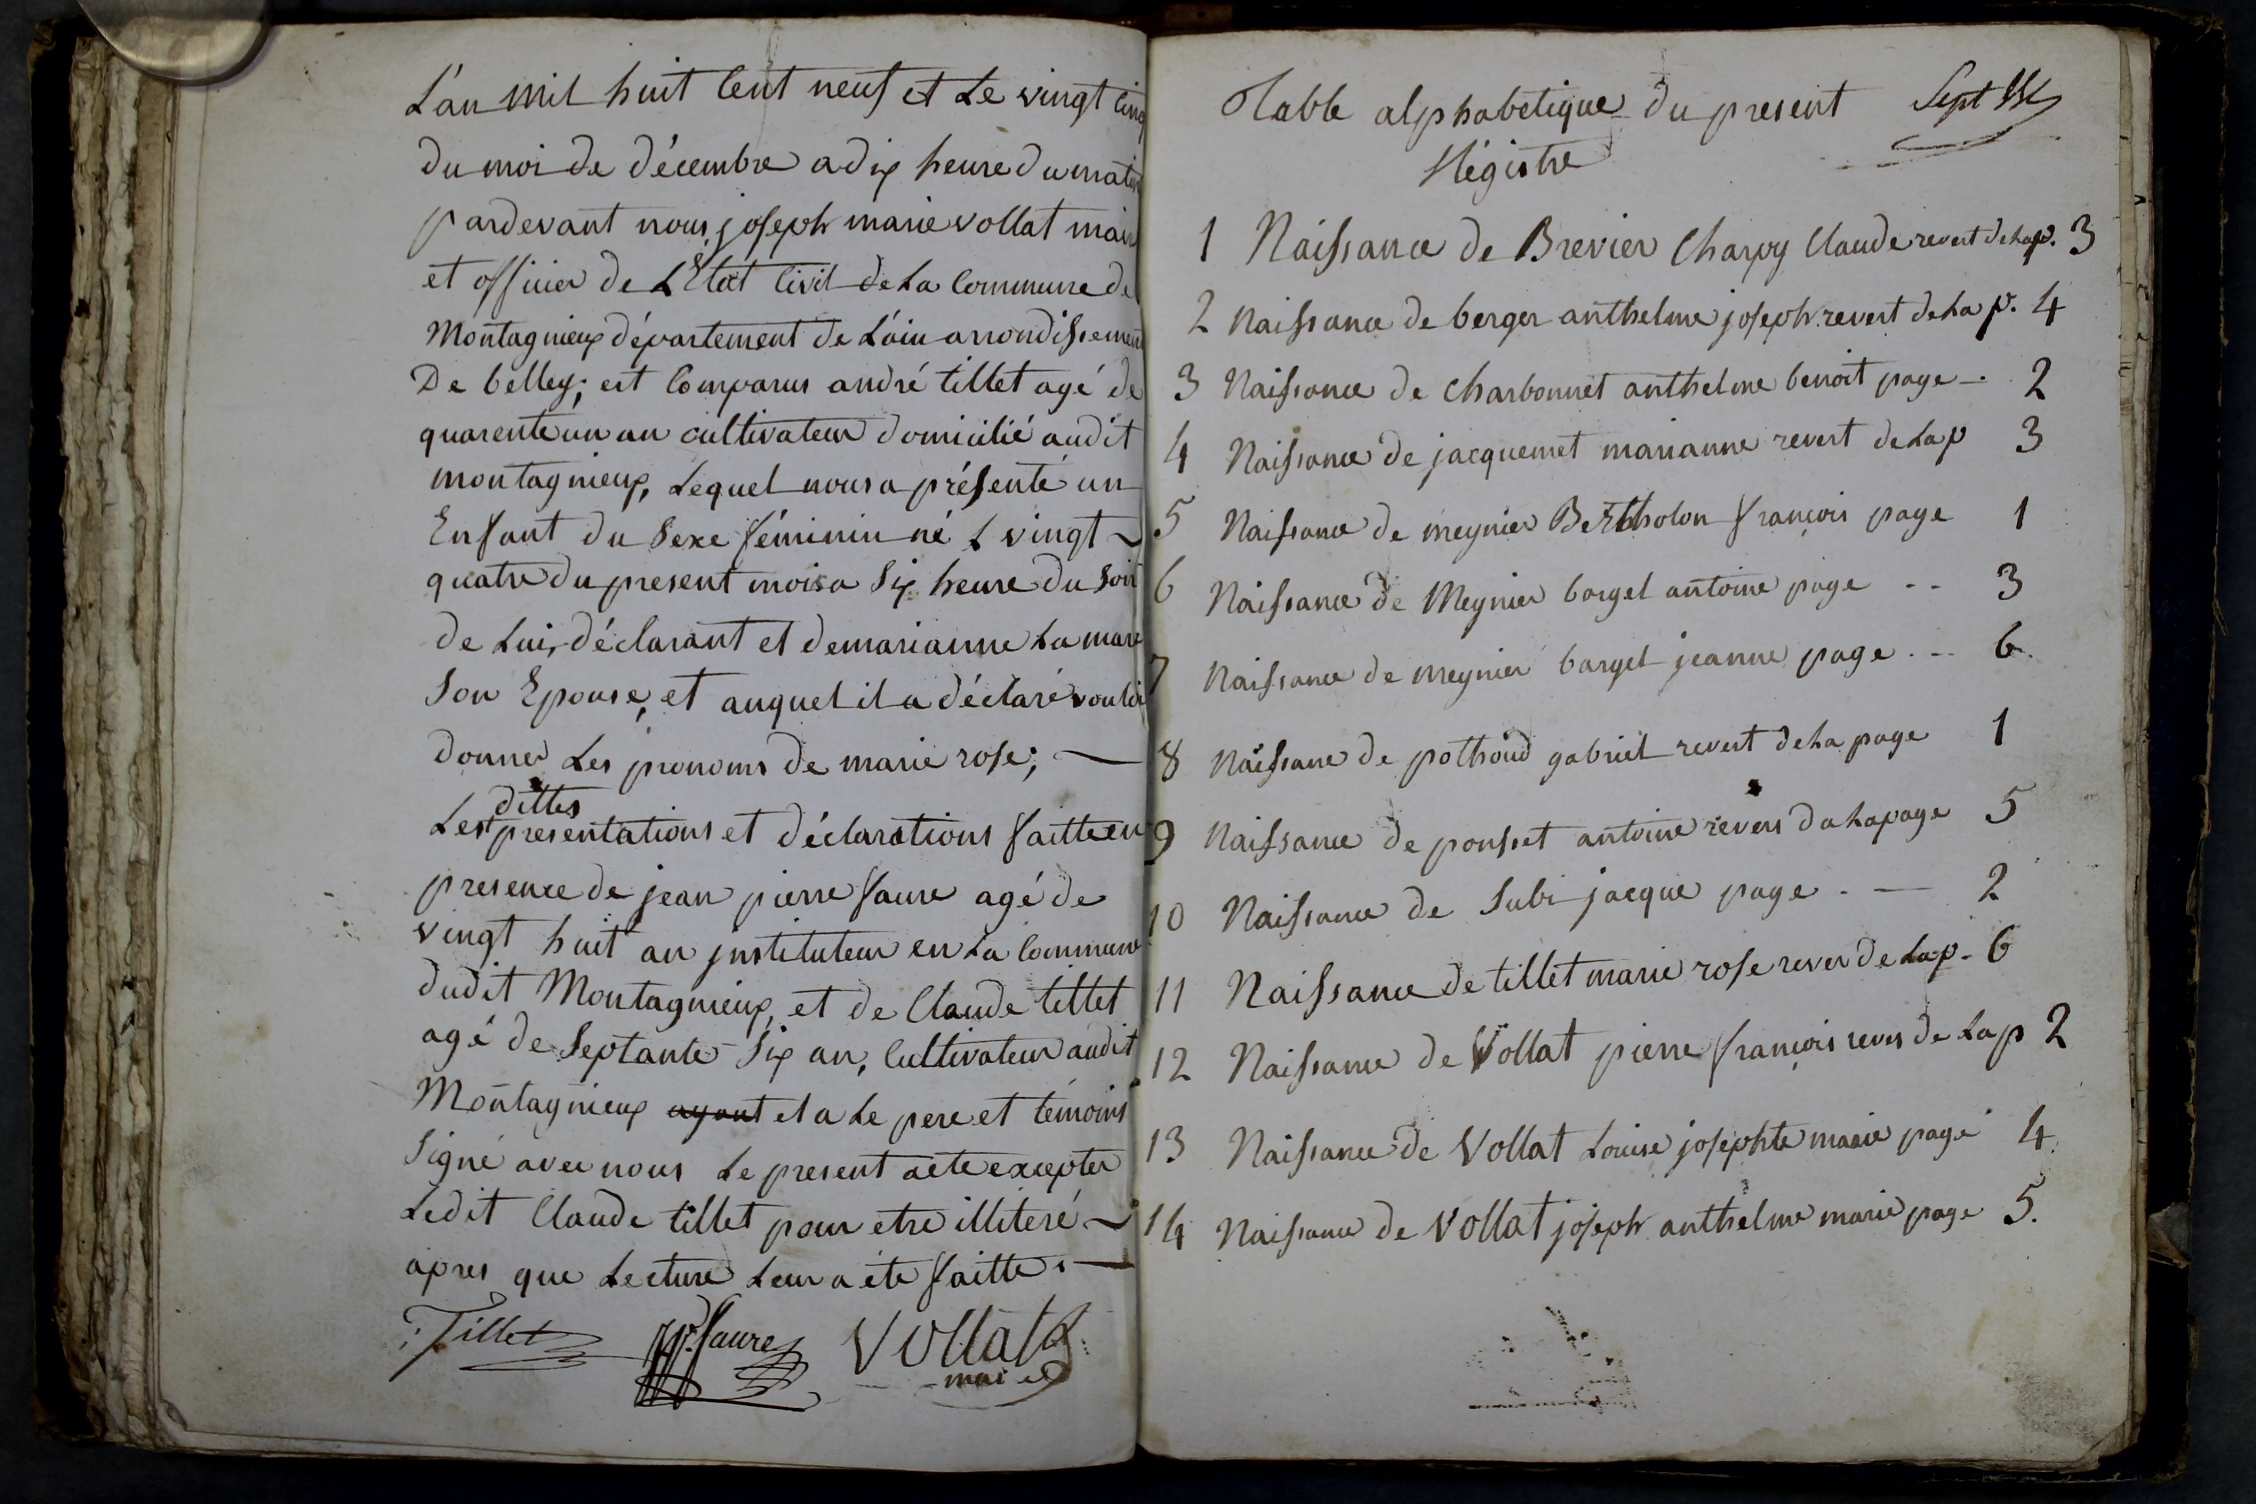 L'an mil huit Cent neuf et Le vingt Cinq
du moi de décembre a dix heure du matin
pardevant nous joseph marie vollat maire
et officier de L'Etat Civil de La Commune de
Montagnieux département de L'ain arrondissement
De belley; est Comparus andré tillet agé de
quarente un an cultivateur domicilié audit
montagnieux, Lequel nous a présenté un
Enfant du Sexe féminin né L vingt
quatre du present mois a Six heure du Soir
de Lui, déclarant et de marianne La mare
Son Epouse, et auquel il a déclaré vouloir
donner Les pronoms de marie rose;
dittes
Les presentations et déclarations faitte en
presence de jean pierre faure agé de
vingt huit an jnstituteur en La Commune
dudit Montagnieux, et de Claude tillet
agé de Septante Six an, Cultivateur audit
Montagnieux ayant et a Le pere et témoins
Signé avec nous Le present acte excepter
Ledit Claude tillet pour etre illiteré
apres que Lecture Leur a éte faitte.
Tillet JP. faure Vollat
maire
Table alphabetique du present Sept
Régistre
1 Naissance de Brevier Charpy Claude revert de La p. 3
2 Naissance de berger anthelme joseph revert de La p. 4
3 Naissance de Charbonnet anthelme benoit page 2
4 Naissance de jacquemet marianne revert de La p 3
5 Naissance de meynier Bertholon françois page 1
6 Naissance de Meynier barget antoine page -- 3
7 Naissance de meynier barget jeanne page .-- 6.
8 Naissance de pothoud gabriel revert de La page 1
9 Naissance de pousset antoine revers da La page 5
10 Naissance de Subi jacque page . — 2
11 Naissance de tillet marie rose rever de La p. 6
12 Naissance de Vollat pierre françois revers de La p 2
13 Naissance de Vollat Louise josephte marie page 4.
14 Naissance de Vollat joseph anthelme marie page 5.